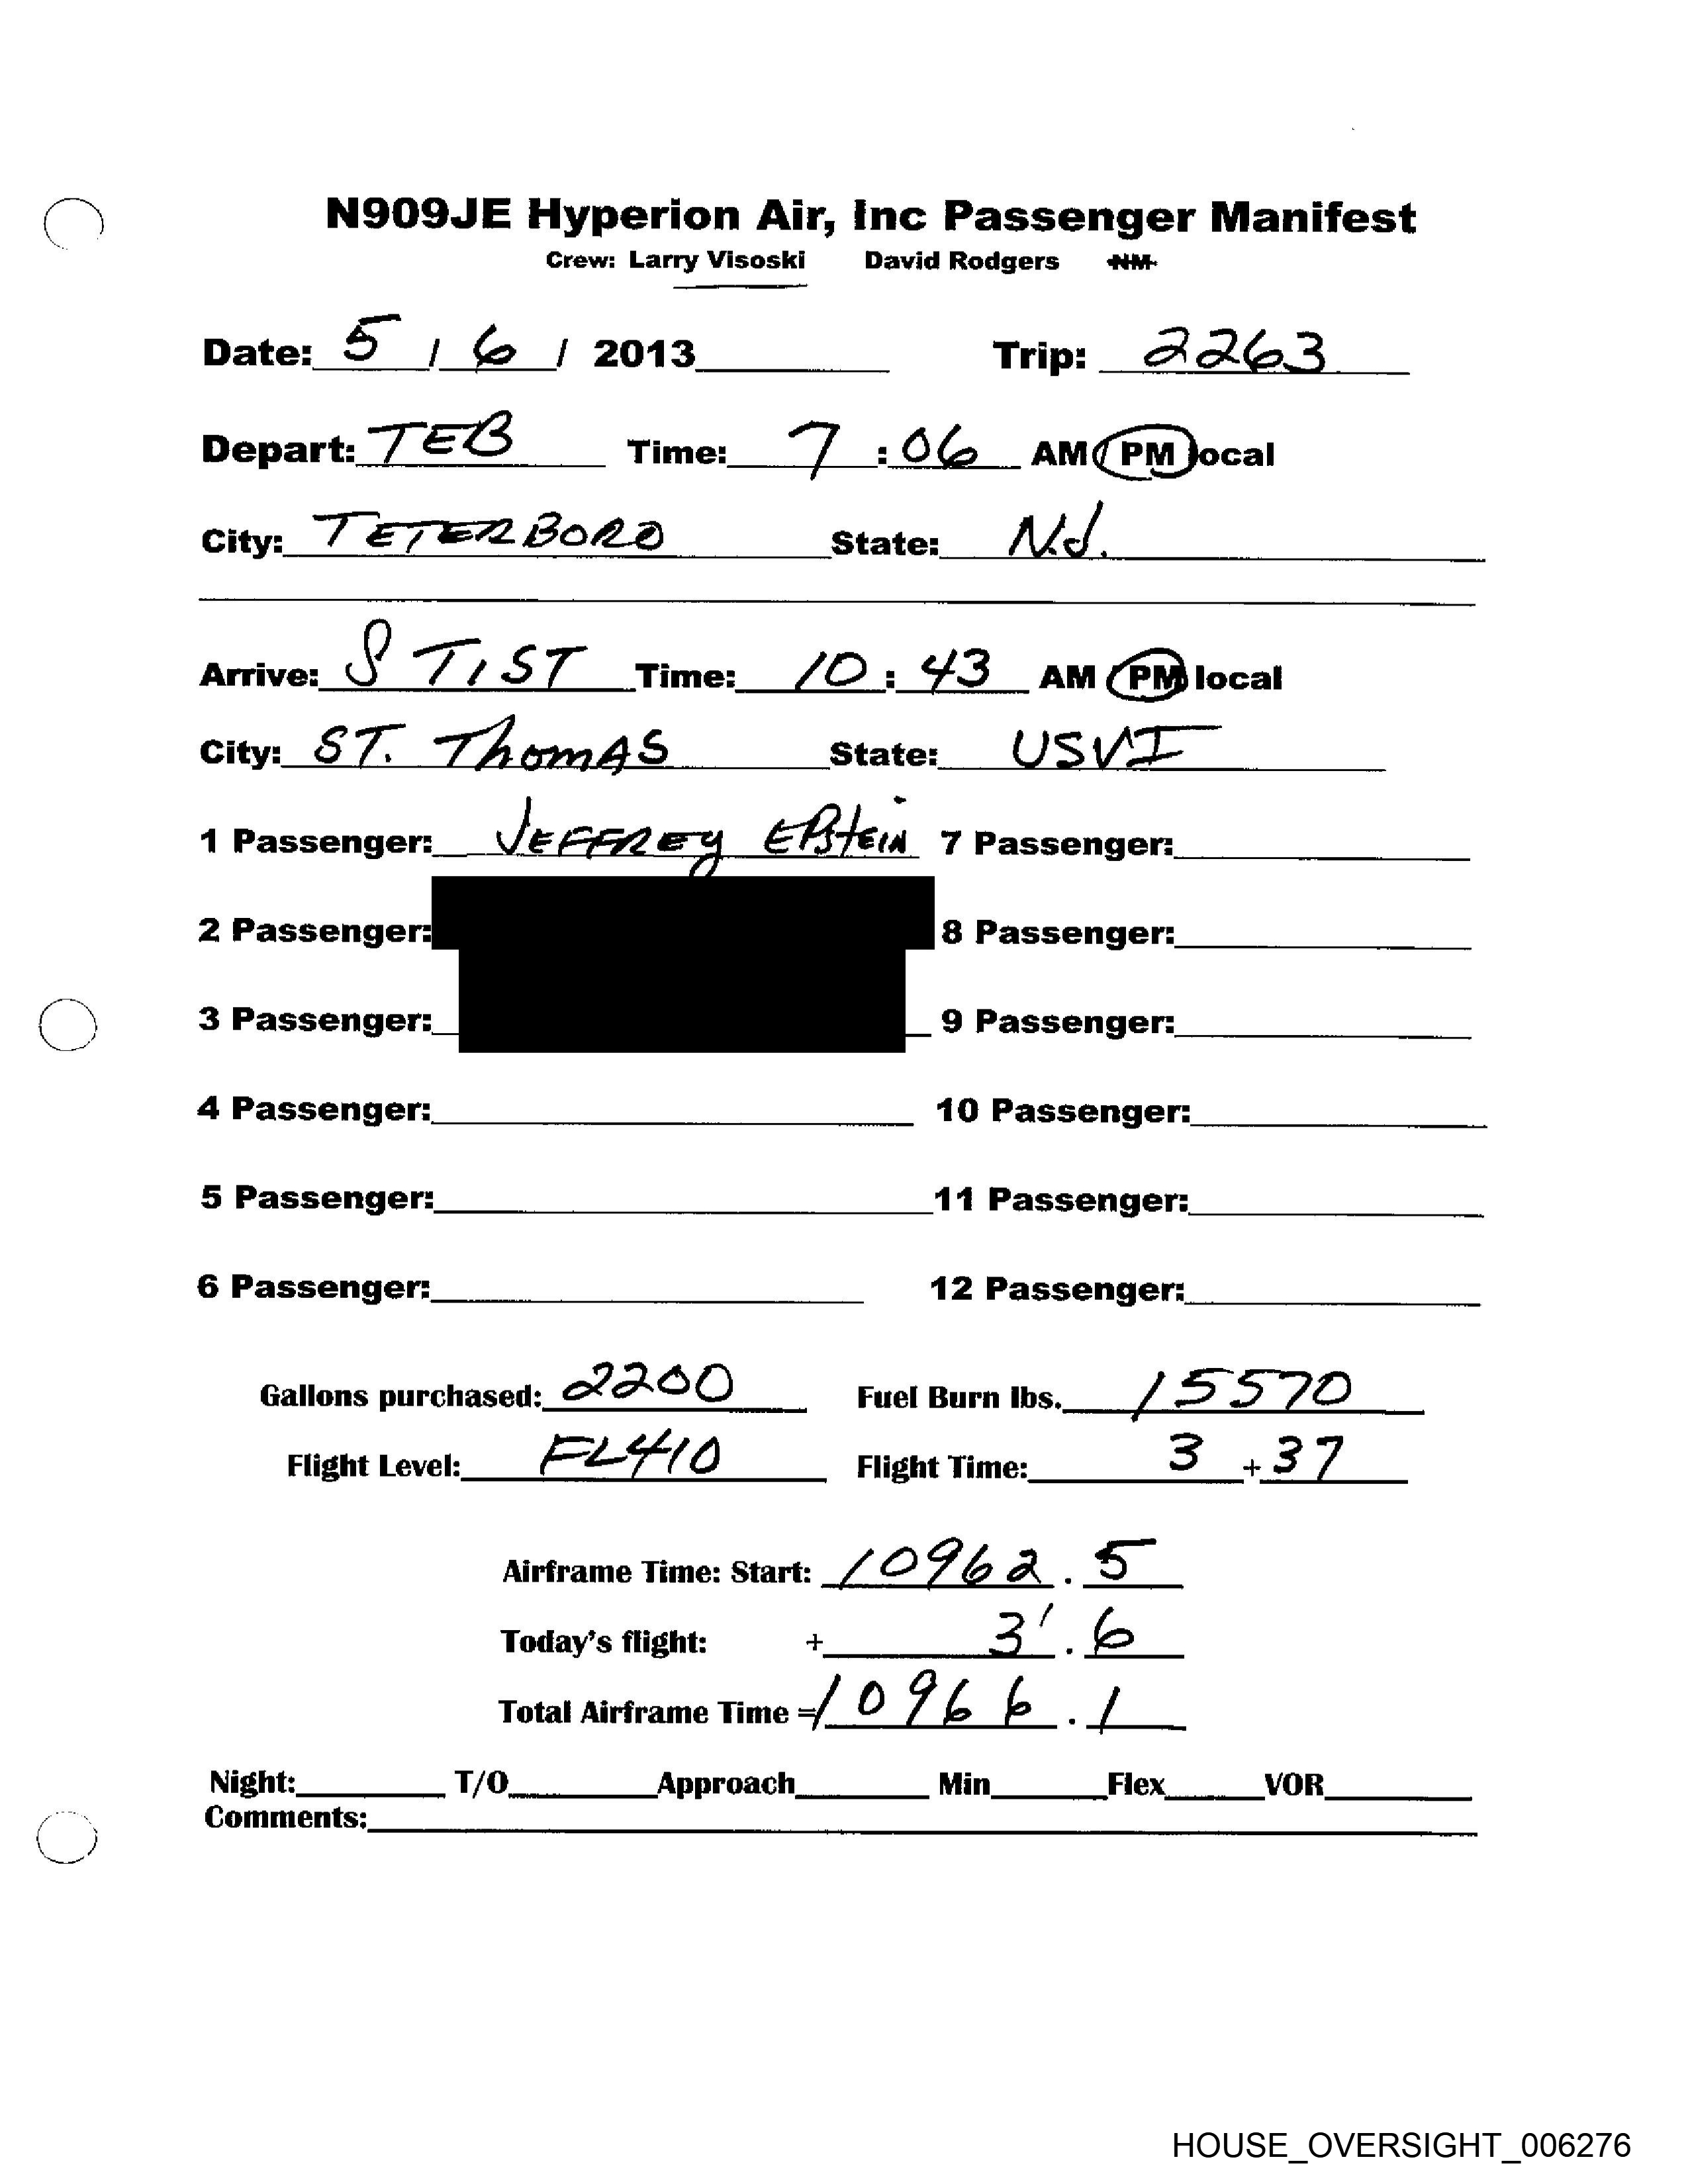 N909JE Hyperion Air, Inc Passenger Manifest
Crew: Larry Visoski David Rodgers NM
Date: 5 / 6 / 2013 Trip: 2263
Depart: TEB Time: 7 : 06 AM / PM local
City: TETERBORO State: N.J.
Arrive: TIST Time: 10 : 43 AM / PM local
City: ST. ThomAS State: USVI
1 Passenger: JEFFREy EPstEIN 7 Passenger:
2 Passenger: 8 Passenger:
3 Passenger: 9 Passenger:
4 Passenger: 10 Passenger:
5 Passenger: 11 Passenger:
6 Passenger: 12 Passenger:
Gallons purchased: 2200 Fuel Burn lbs. 15570
Flight Level: FL410 Flight Time: 3 + 37
Airframe Time: Start: 10962 . 5
Today's flight: + 3 . 6
Total Airframe Time = 10966 . 1
Night: T/O Approach Min Flex VOR
Comments:
HOUSE_OVERSIGHT_006276